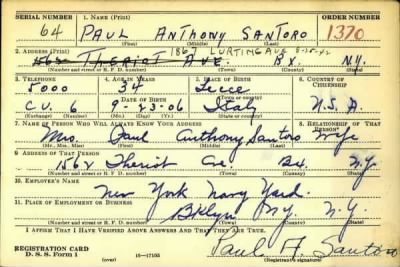 SERIAL NUMBER 1. NAME (Print) ORDER NUMBER
64 PAUL ANTHONY SANTORO 1370
(First) (Middle) (Last)
1867 LURTING AVE 8-15-42
2. ADDRESS (Print)
1562 THERIOT AVE. BX. N.Y.
(Number and street or R. F. D. number) (Town) (County) (State)
3. TELEPHONE 4. AGE IN YEARS 5. PLACE OF BIRTH 6. COUNTRY OF CITIZENSHIP
5000 34 Lecce
DATE OF BIRTH (Town or county)
CU. 6 6-23-06 Italy U.S.A.
(Exchange) (Number) (Mo.) (Day) (Yr.) (State or country)
7. NAME OF PERSON WHO WILL ALWAYS KNOW YOUR ADDRESS 8. RELATIONSHIP OF THAT PERSON
Mrs. Paul Anthony Santoro Wife
(Mr., Mrs., Miss) (First) (Middle) (Last)
9. ADDRESS OF THAT PERSON
1562 Theriot Ave. Bx. N.Y.
(Number and street or R. F. D. number) (Town) (County) (State)
10. EMPLOYER'S NAME
New York Navy Yard.
11. PLACE OF EMPLOYMENT OR BUSINESS
Bklyn N.Y. N.Y.
(Number and street or R. F. D. number) (Town) (County) (State)
I AFFIRM THAT I HAVE VERIFIED ABOVE ANSWERS AND THAT THEY ARE TRUE.
REGISTRATION CARD
D. S. S. Form 1 16—17105 Paul A. Santoro
(Registrant's signature)